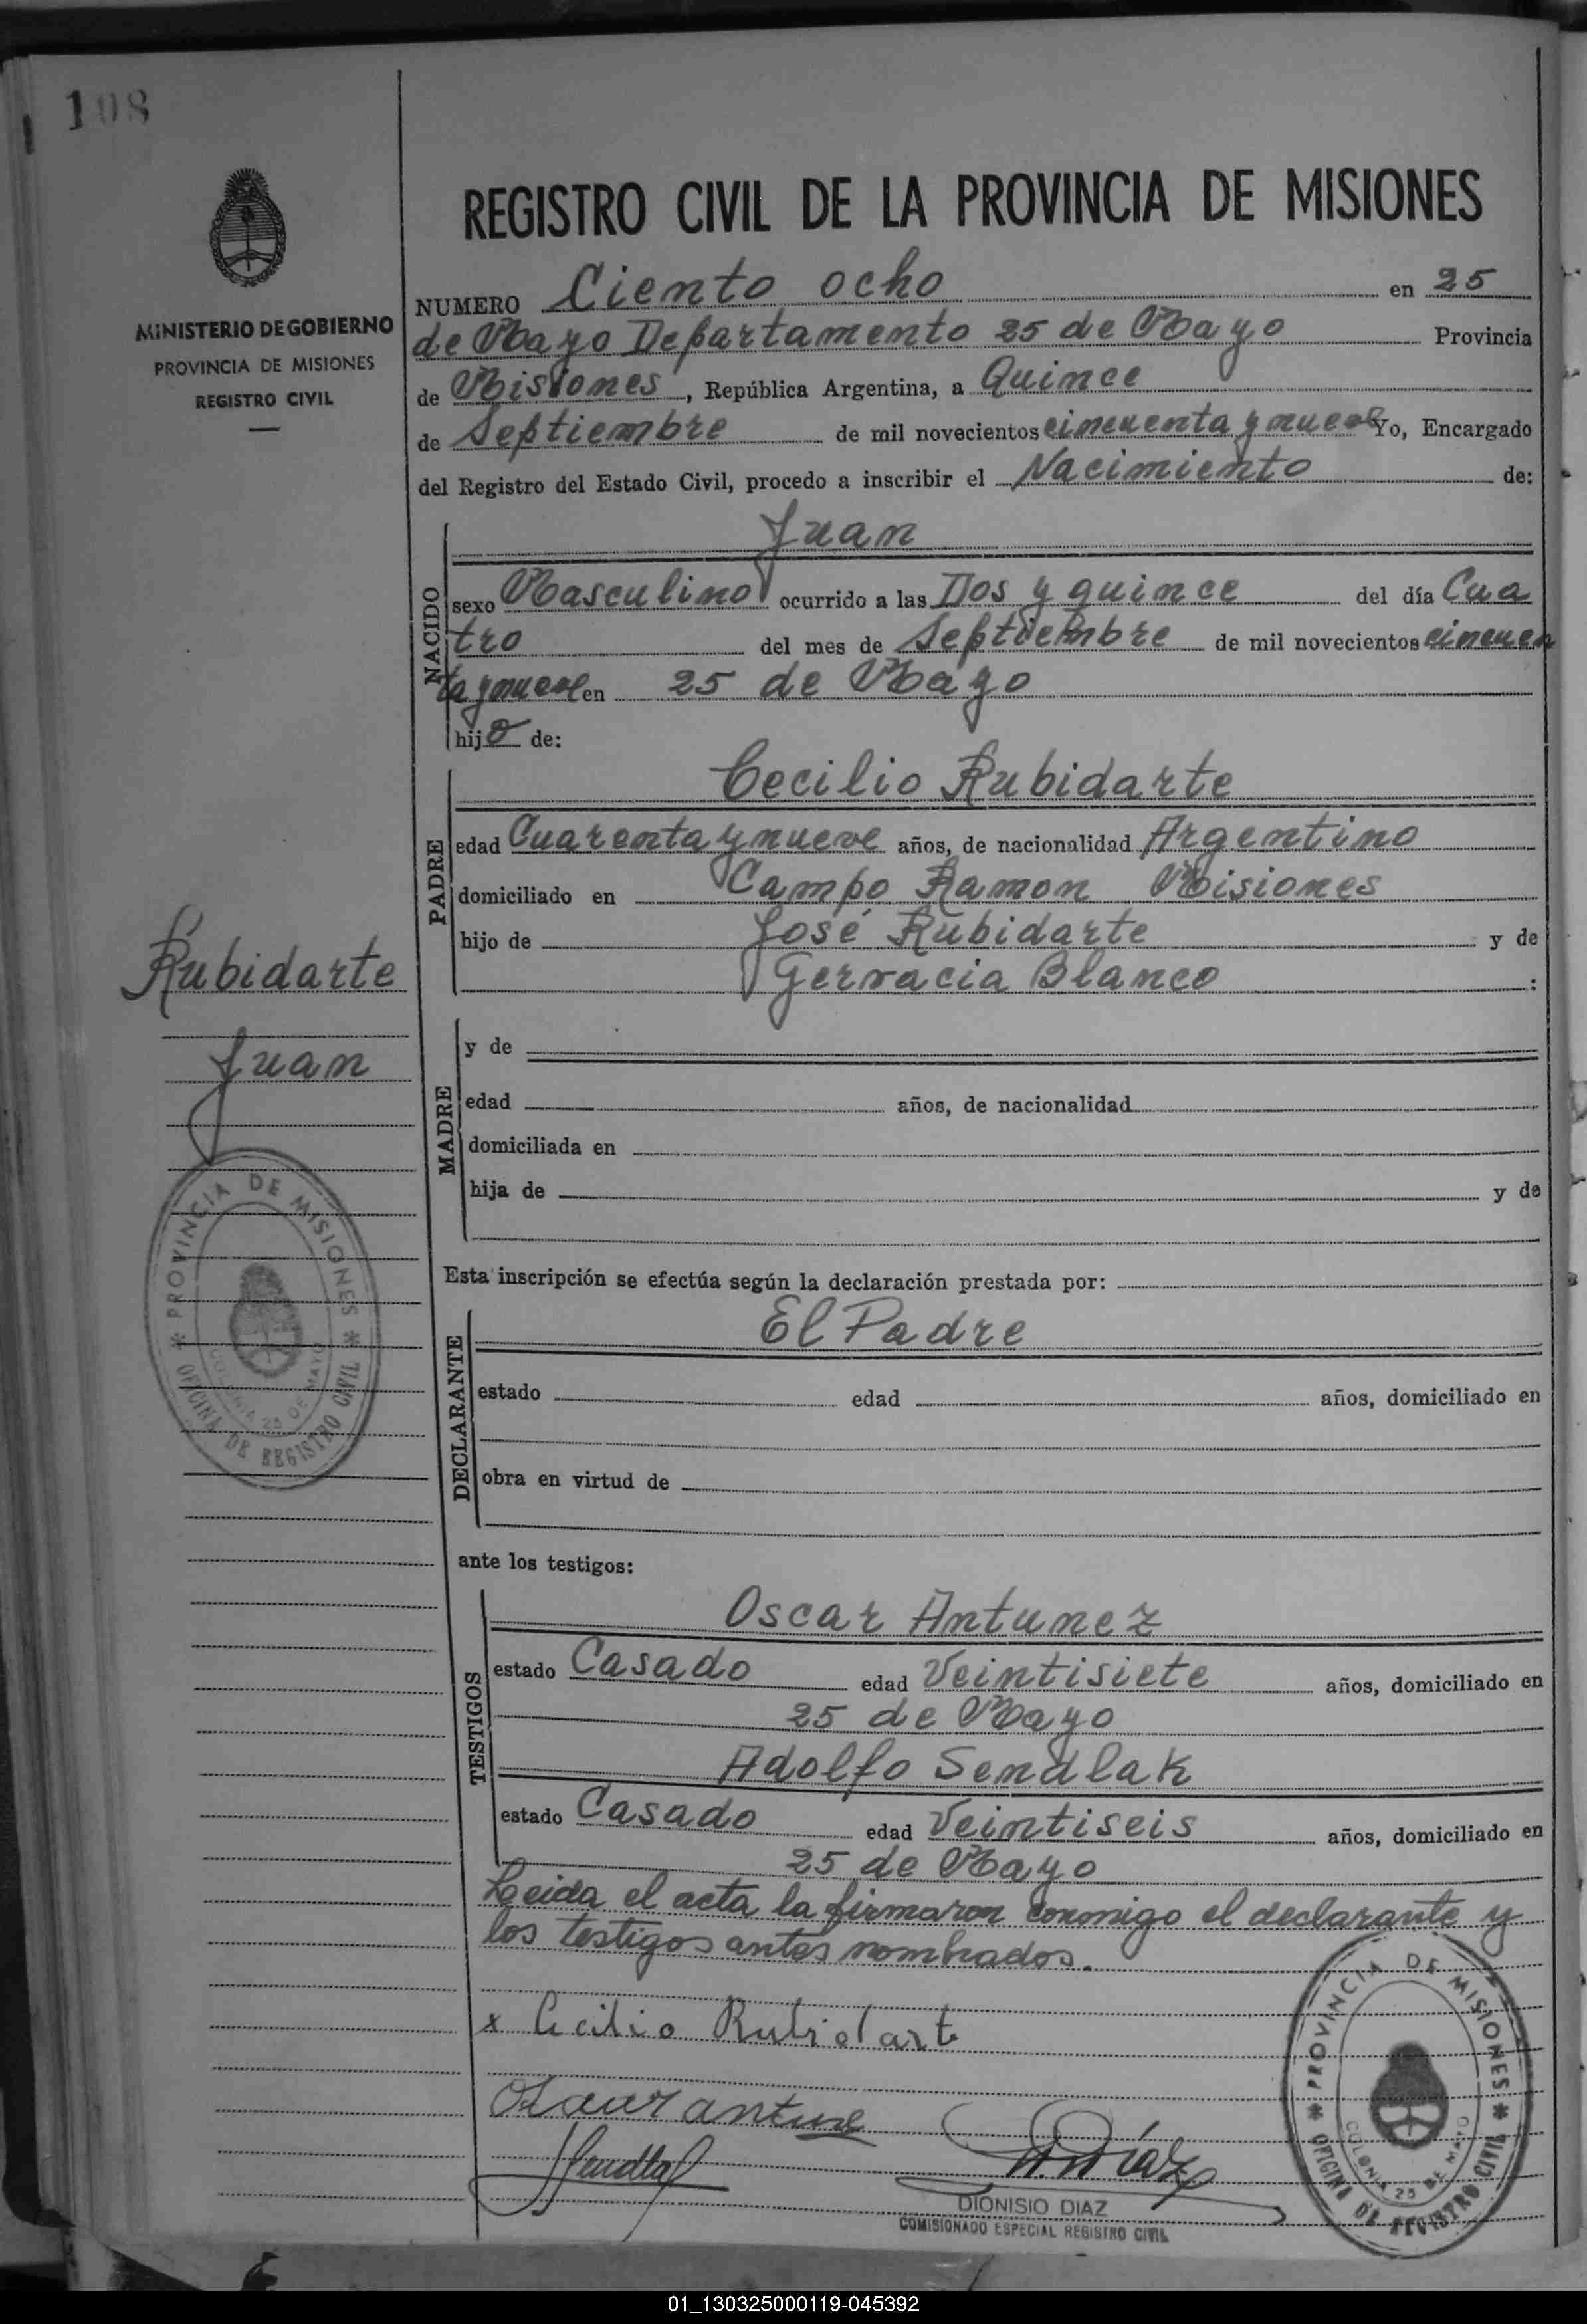 108
MINISTERIO DE GOBIERNO
PROVINCIA DE MISIONES
REGISTRO CIVIL
REGISTRO CIVIL DE LA PROVINCIA DE MISIONES
NUMERO Ciento ocho en 25
de Mayo Departamento 25 de Mayo Provincia
de Misiones, República Argentina, a Quince
de Septiembre de mil novecientos cincuenta y nueve Yo, Encargado
del Registro del Estado Civil, procedo a inscribir el Nacimiento de:
NACIDO
Juan
sexo Masculino ocurrido a las Dos y quince del día Cua
tro del mes de Septiembre de mil novecientos cincuen
ta y nueve en 25 de Mayo
hijo de:
PADRE
Cecilio Rubidarte
edad Cuarenta y nueve años, de nacionalidad Argentino
domiciliado en Campo Ramon Misiones
hijo de José Rubidarte y de
Gervacia Blanco :
Rubidarte
Juan
MADRE
y de
edad años, de nacionalidad
domiciliada en
hija de y de
PROVINCIA DE MISIONES
COLONIA 25 DE MAYO
OFICINA DE REGISTRO CIVIL
Esta inscripción se efectúa según la declaración prestada por:
DECLARANTE
El Padre
estado edad años, domiciliado en
obra en virtud de
ante los testigos:
TESTIGOS
Oscar Antunez
estado Casado edad Veintisiete años, domiciliado en
25 de Mayo
Adolfo Sendlak
estado Casado edad Veintiseis años, domiciliado en
25 de Mayo
Leida el acta la firmaron conmigo el declarante y
los testigos antes nombrados.
x Cecilio Rubidarte
Oscar Antune
Sendlak
D. Díaz
DIONISIO DIAZ
COMISIONADO ESPECIAL REGISTRO CIVIL
PROVINCIA DE MISIONES
COLONIA 25 DE MAYO
OFICINA DE REGISTRO CIVIL
01_130325000119-045392